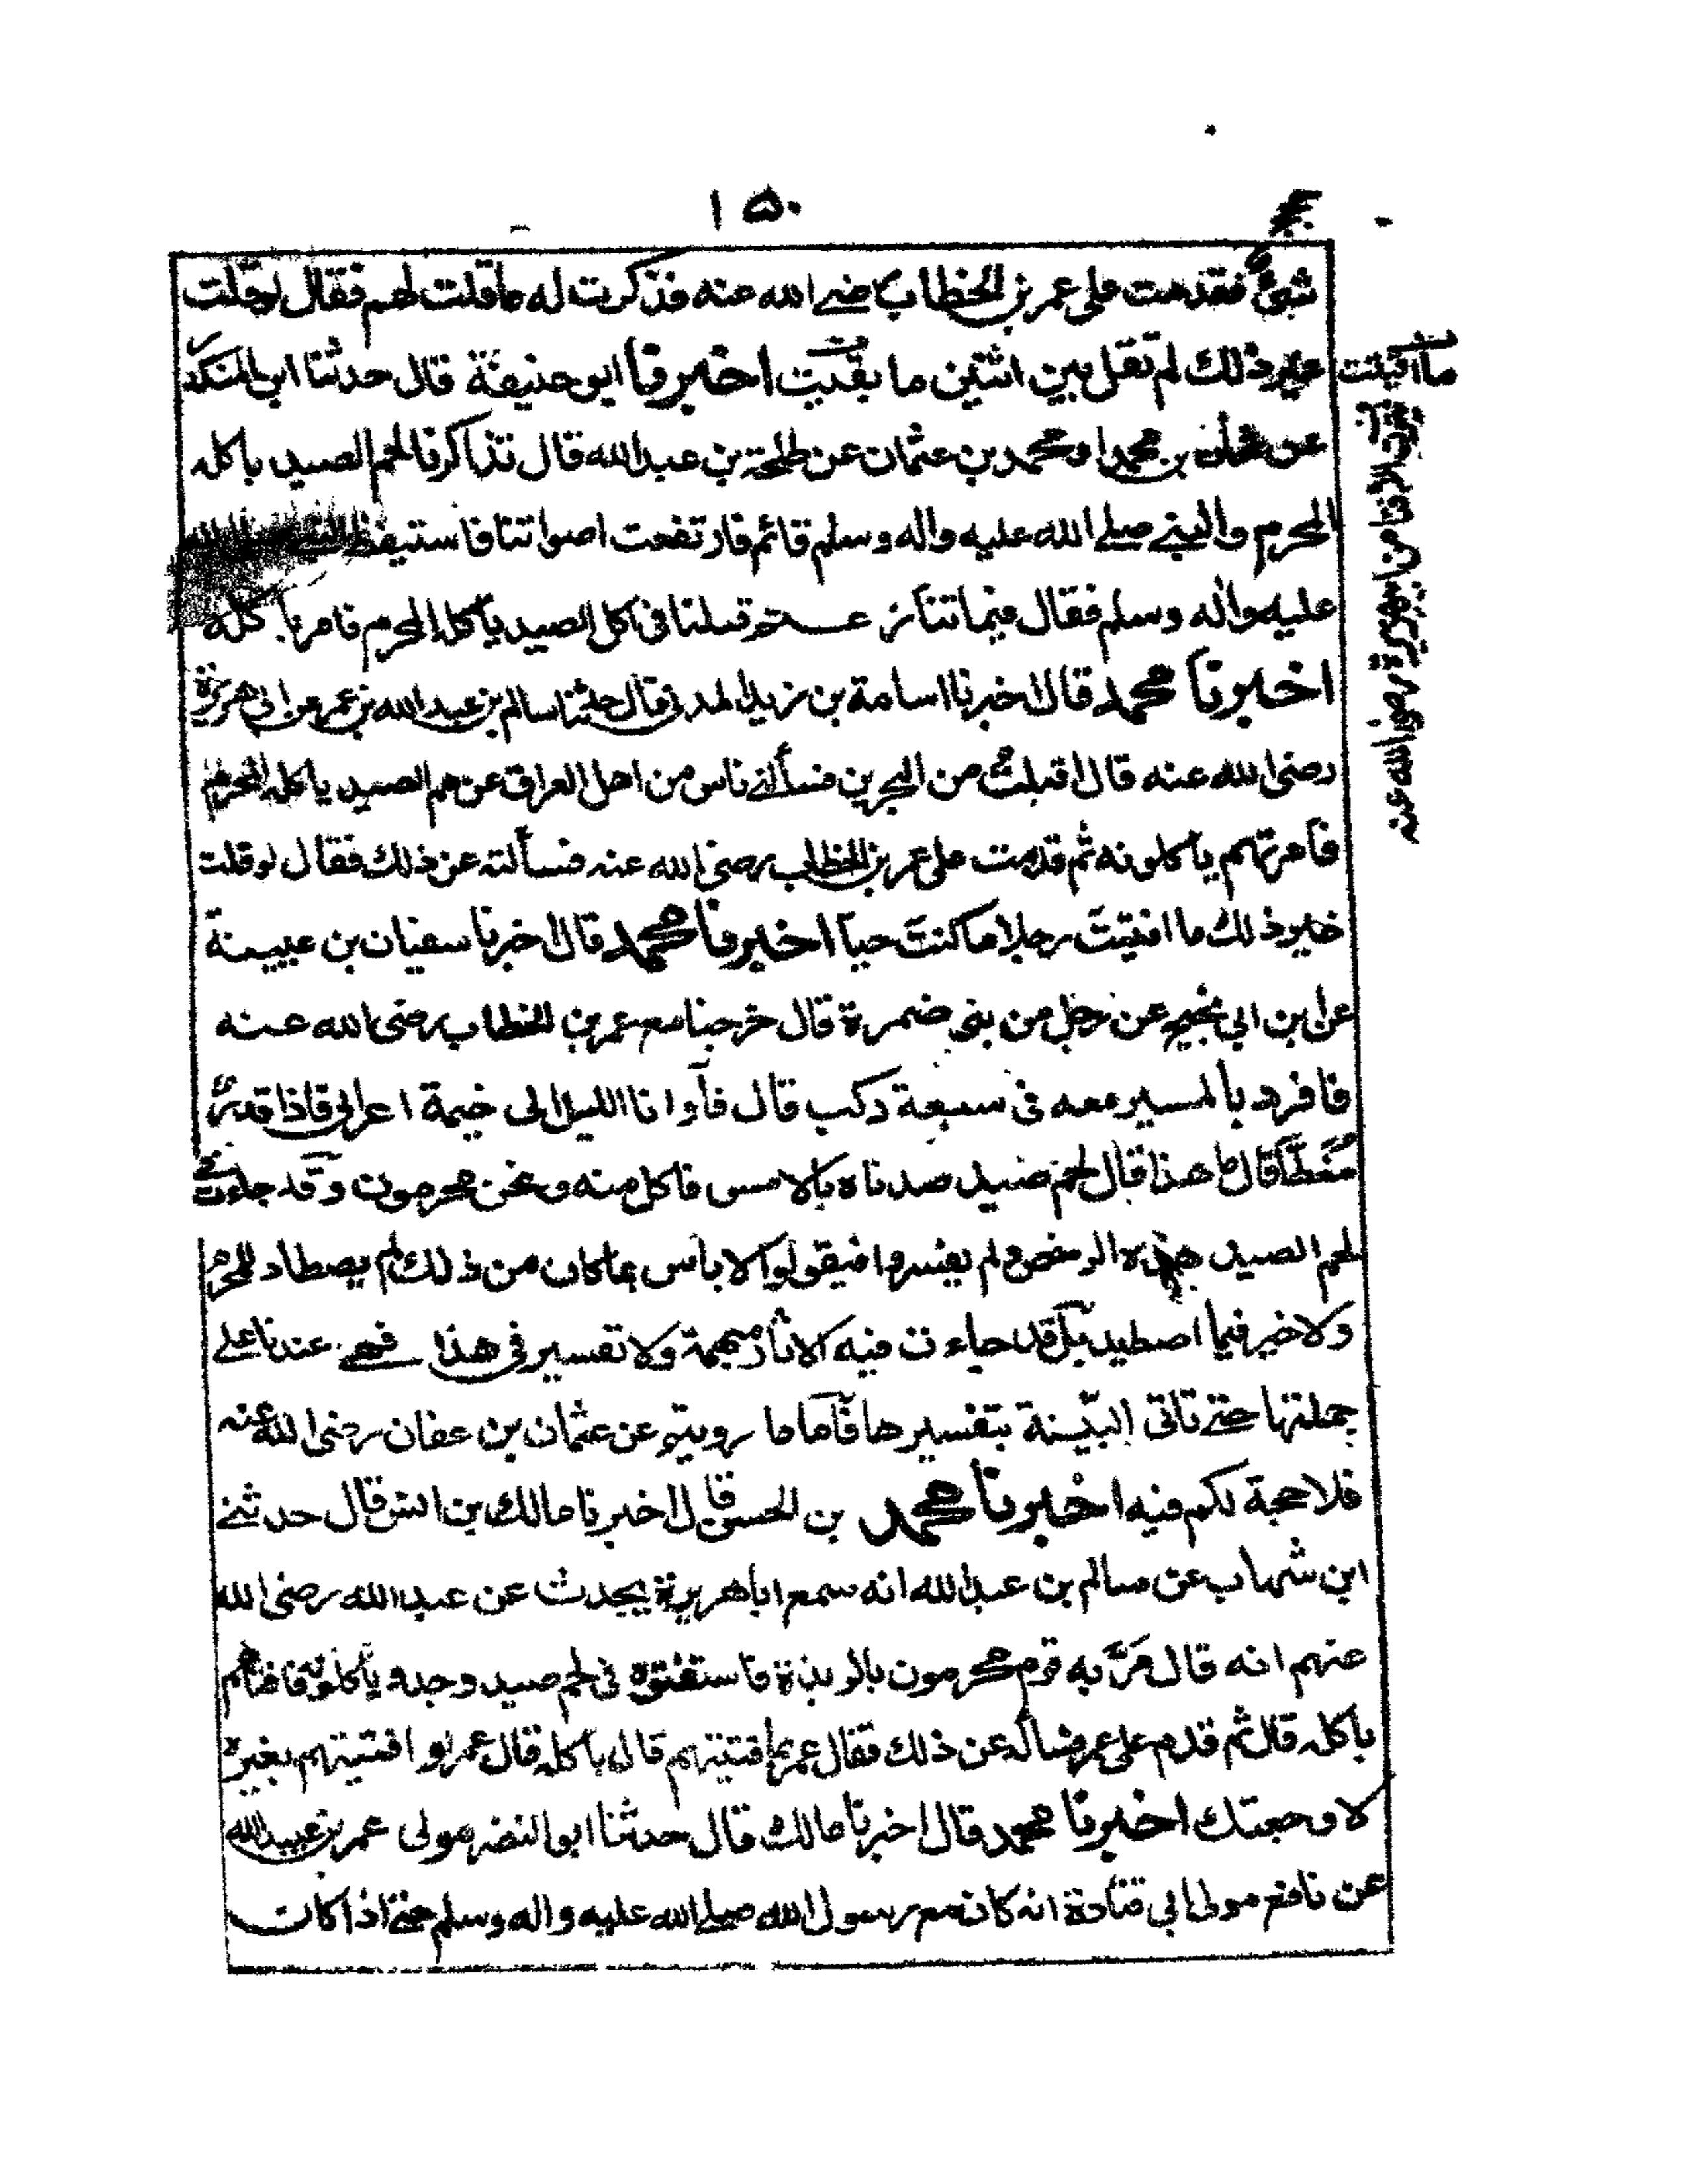 ١٥٠
شيئ فقدمت على عمر بن الخطاب رضي الله عنه فذكرت له ما قلت لهم فقال لو قلت
غير ذلك لم تقل بين اثنين ما بقيت اخبرنا ابو حنيفة قال حدثنا ابن المنكدر
عن عثمان بن محمد او محمد بن عثمان عن طلحة بن عبد الله قال تذاكرنا لحم الصيد ياكله
المحرم والنبي صلى الله عليه واله وسلم قائم فارتفعت اصواتنا فاستيقظ النبي صلى الله
عليه واله وسلم فقال فيما تتنازعون فقلنا في اكل الصيد ياكله المحرم فامرنا باكله
اخبرنا محمد قال اخبرنا اسامة بن زيد المدني قال حدثنا سالم بن عبد الله بن عمر عن ابي هريرة
رضى الله عنه قال اقبلت من البحرين فسألني ناس من اهل العراق عن لحم الصيد ياكله المحرم
فأمرتهم ياكلونه ثم قدمت على عمر بن الخطاب رضى الله عنه فسألته عن ذلك فقال لو قلت
خير ذلك ما افتيتَ رجلا ما كنتَ حيا اخبرنا محمد قال اخبرنا سفيان بن عيينة
عن ابن ابي نجيح عن رجل من بنى ضمرة قال خرجنا مع عمر بن الخطاب رضى الله عنه
فافرد بالمسير معه فى سبعة ركب قال فآوانا الليل الى خيمة اعرابي فاذا قدر
مغطّا قال ما هذا قال لحم صيد صدناه بالامس فاكل منه ونحن محرمون وقد جاءت في
لحم الصيد هذه الرخص ولم يفسروا فيقولوا لا بأس بما كان من ذلك لم يصطاد للمحرم
ولا خير فيما اصطيد بل قد جاءت فيه الاثار مبهمة ولا تفسير فى هذا فهي عندنا على
جملتها حتى تاتى البيّنة بتفسيرها فأما ما رويتم عن عثمان بن عفان رضى الله عنه
فلا حجة لكم فيه اخبرنا محمد بن الحسن قال اخبرنا مالك بن انس قال حدثني
ابن شهاب عن سالم بن عبد الله انه سمع ابا هريرة يحدث عن عبد الله رضى الله
عنهم انه قال مَرَّ به قوم محرمون بالربذة فاستفتوه فى لحم صيد وجدوه ياكلونه فافتاهم
باكله قال ثم قدم على عمر فسأله عن ذلك فقال عمر بما افتيتهم قال باكله قال عمر لو افتيتهم بغيره
لاوجعتك اخبرنا محمد قال اخبرنا مالك قال حدثنا ابو النضر مولى عمر بن عبيد الله
عن نافع مولى ابي قتادة انه كان مع رسول الله صلى الله عليه واله وسلم حتى اذا كان